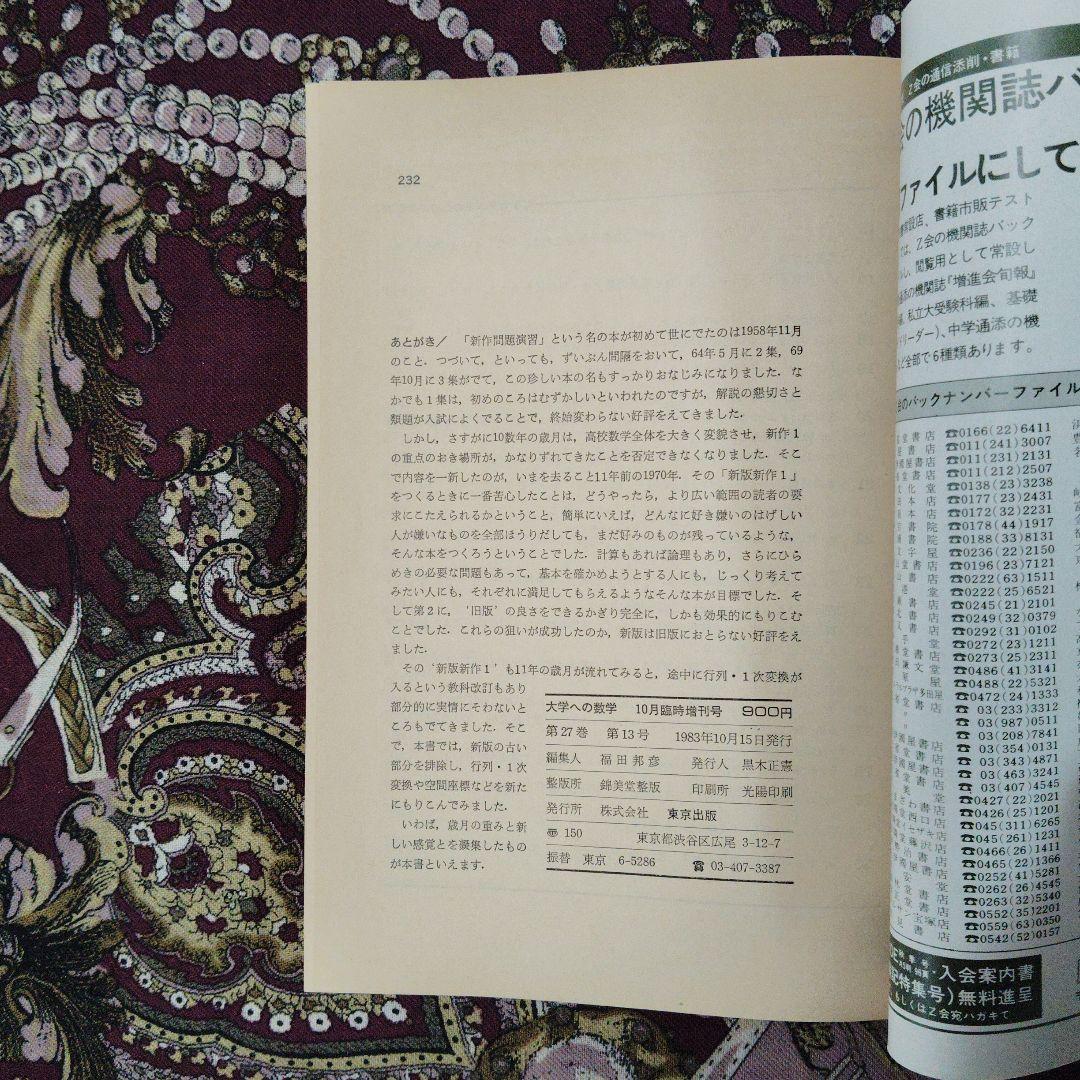 232
あとがき／　「新作問題演習」という名の本が初めて世にでたのは1958年11月
のこと．つづいて，といっても，ずいぶん間隔をおいて，64年5月に2集，69
年10月に3集がでて，この珍しい本の名もすっかりおなじみになりました．な
かでも1集は，初めのころはむずかしいといわれたのですが，解説の懇切さと
類題が入試によくでることで，終始変わらない好評をえてきました．
しかし，さすがに10数年の歳月は，高校数学全体を大きく変貌させ，新作1
の重点のおき場所が，かなりずれてきたことを否定できなくなりました．そこ
で内容を一新したのが，いまを去ること11年前の1970年．その「新版新作1」
をつくるときに一番苦心したことは，どうやったら，より広い範囲の読者の要
求にこたえられるかということ，簡単にいえば，どんなに好き嫌いのはげしい
人が嫌いなものを全部ほうりだしても，まだ好みのものが残っているような，
そんな本をつくろうということでした．計算もあれば論理もあり，さらにひら
めきの必要な問題もあって，基本を確かめようとする人にも，じっくり考えて
みたい人にも，それぞれに満足してもらえるようなそんな本が目標でした．そ
して第2に，‘旧版’の良さをできるかぎり完全に，しかも効果的にもりこむ
ことでした．これらの狙いが成功したのか，新版は旧版におとらない好評をえ
ました．
その‘新版新作1’も11年の歳月が流れてみると，途中に行列・1次変換が
入るという教科改訂もあり
部分的に実情にそわないと
ころもでてきました．そこ
で，本書では，新版の古い
部分を排除し，行列・1次
変換や空間座標などを新た
にもりこんでみました．
いわば，歳月の重みと新
しい感覚とを凝集したもの
が本書といえます．
大学への数学　10月臨時増刊号　900円
第27巻　第13号　1983年10月15日発行
編集人　福田邦彦　発行人　黒木正憲
整版所　錦美堂整版　印刷所　光陽印刷
発行所　株式会社　東京出版
〠150　東京都渋谷区広尾 3-12-7
振替　東京　6-5286　☎ 03-407-3387
Z会の通信添削・書籍
の機関誌バ
ファイルにして
設店、書籍市販テスト
は、Z会の機関誌バック
し、閲覧用として常設し
添の機関誌『増進会旬報』
私立大受験科編、基礎
リーダー)、中学通添の機
ど全部で6種類あります。
のバックナンバーファイル
堂書店 ☎0166(22)6411
書店 ☎011(241)3007
國屋書店 ☎011(231)2131
書店 ☎011(212)2507
文化堂 ☎0138(23)3238
本店 ☎0177(23)2431
本店 ☎0172(32)2231
書院 ☎0178(44)1917
書房 ☎0188(33)8131
文字屋 ☎0236(22)2150
堂書店 ☎0196(23)7121
山書 ☎0222(63)1511
港堂 ☎0222(25)6521
書店 ☎0245(21)2101
書店 ☎0249(32)0379
書店 ☎0292(31)0102
乎堂 ☎0272(23)1211
堂書店 ☎0273(25)2311
謙文堂 ☎0486(41)3141
屋 ☎0488(22)5321
ブラザ多田屋 ☎0472(24)1333
☎03(233)3312
〃 ☎03(987)0511
〃 ☎03(208)7841
國屋書店 ☎03(354)0131
堂書店 ☎03(463)3241
書店 ☎03(407)4545
美堂 ☎0427(22)2021
ざわ書店 ☎0426(25)1201
堂西口店 ☎045(311)6265
イセザキ店 ☎045(261)1231
堂藤沢店 ☎0466(26)1411
書店 ☎0465(22)1366
安堂 ☎0252(41)5281
堂書店 ☎0262(26)4545
堂書店 ☎0263(32)5340
サン宝塚店 ☎0552(35)2201
書店 ☎0559(63)0350
書店 ☎0542(52)0157
入会案内書
特集号)無料進呈
しくはZ会宛ハガキて